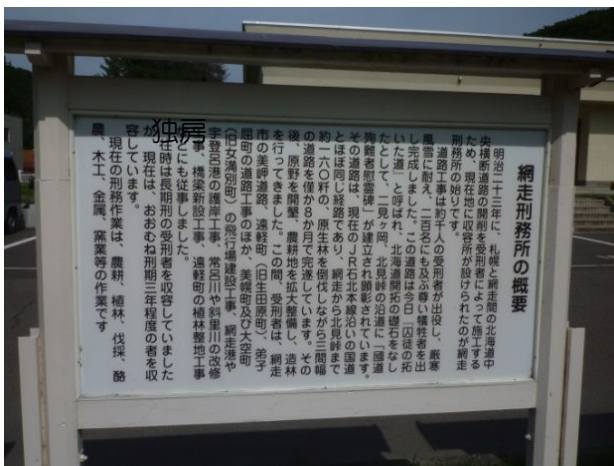 網走刑務所の概要
明治二十三年に、札幌と網走間の北海道中
央横断道路の開削を受刑者によって施工する
ため、現在地に収容所が設けられたのが網走
刑務所の始りです。
道路工事は約千人の受刑者が出役し、厳寒
風雪に耐え、二百名にも及ぶ尊い犠牲者を出
し完成しました。この道路は今日「囚徒の拓
いた道」と呼ばれ、北海道開拓の礎石をなし
たとして、二見ヶ岡、北見峠の沿道に「國道
殉難者慰霊碑」が建立され顕彰されています。
その道路は、現在のJR石北本線沿いの国道
とほぼ同じ経路であり、網走から北見峠まで
約一六〇粁の、原生林を倒伐しながら三間幅
の道路を僅か8か月で完遂しています。その
後、原野を開墾、農耕地を拡大整備し、造林
を行ってきました。この間、受刑者は、網走
市の美岬道路、遠軽町(旧生田原町)、弟子
屈町の道路工事のほか、美幌町及び大空町
(旧女満別町)の飛行場建設工事、網走港や
宇登呂港の護岸工事、常呂川や斜里川の改修
事、橋梁新設工事、遠軽町の植林整地工事
にも従事しました。
往時は長期刑の受刑者を収容していました
が、現在は、おおむね刑期三年程度の者を収
容しています。
現在の刑務作業は、農耕、植林、伐採、酪
農、木工、金属、窯業等の作業です
独房